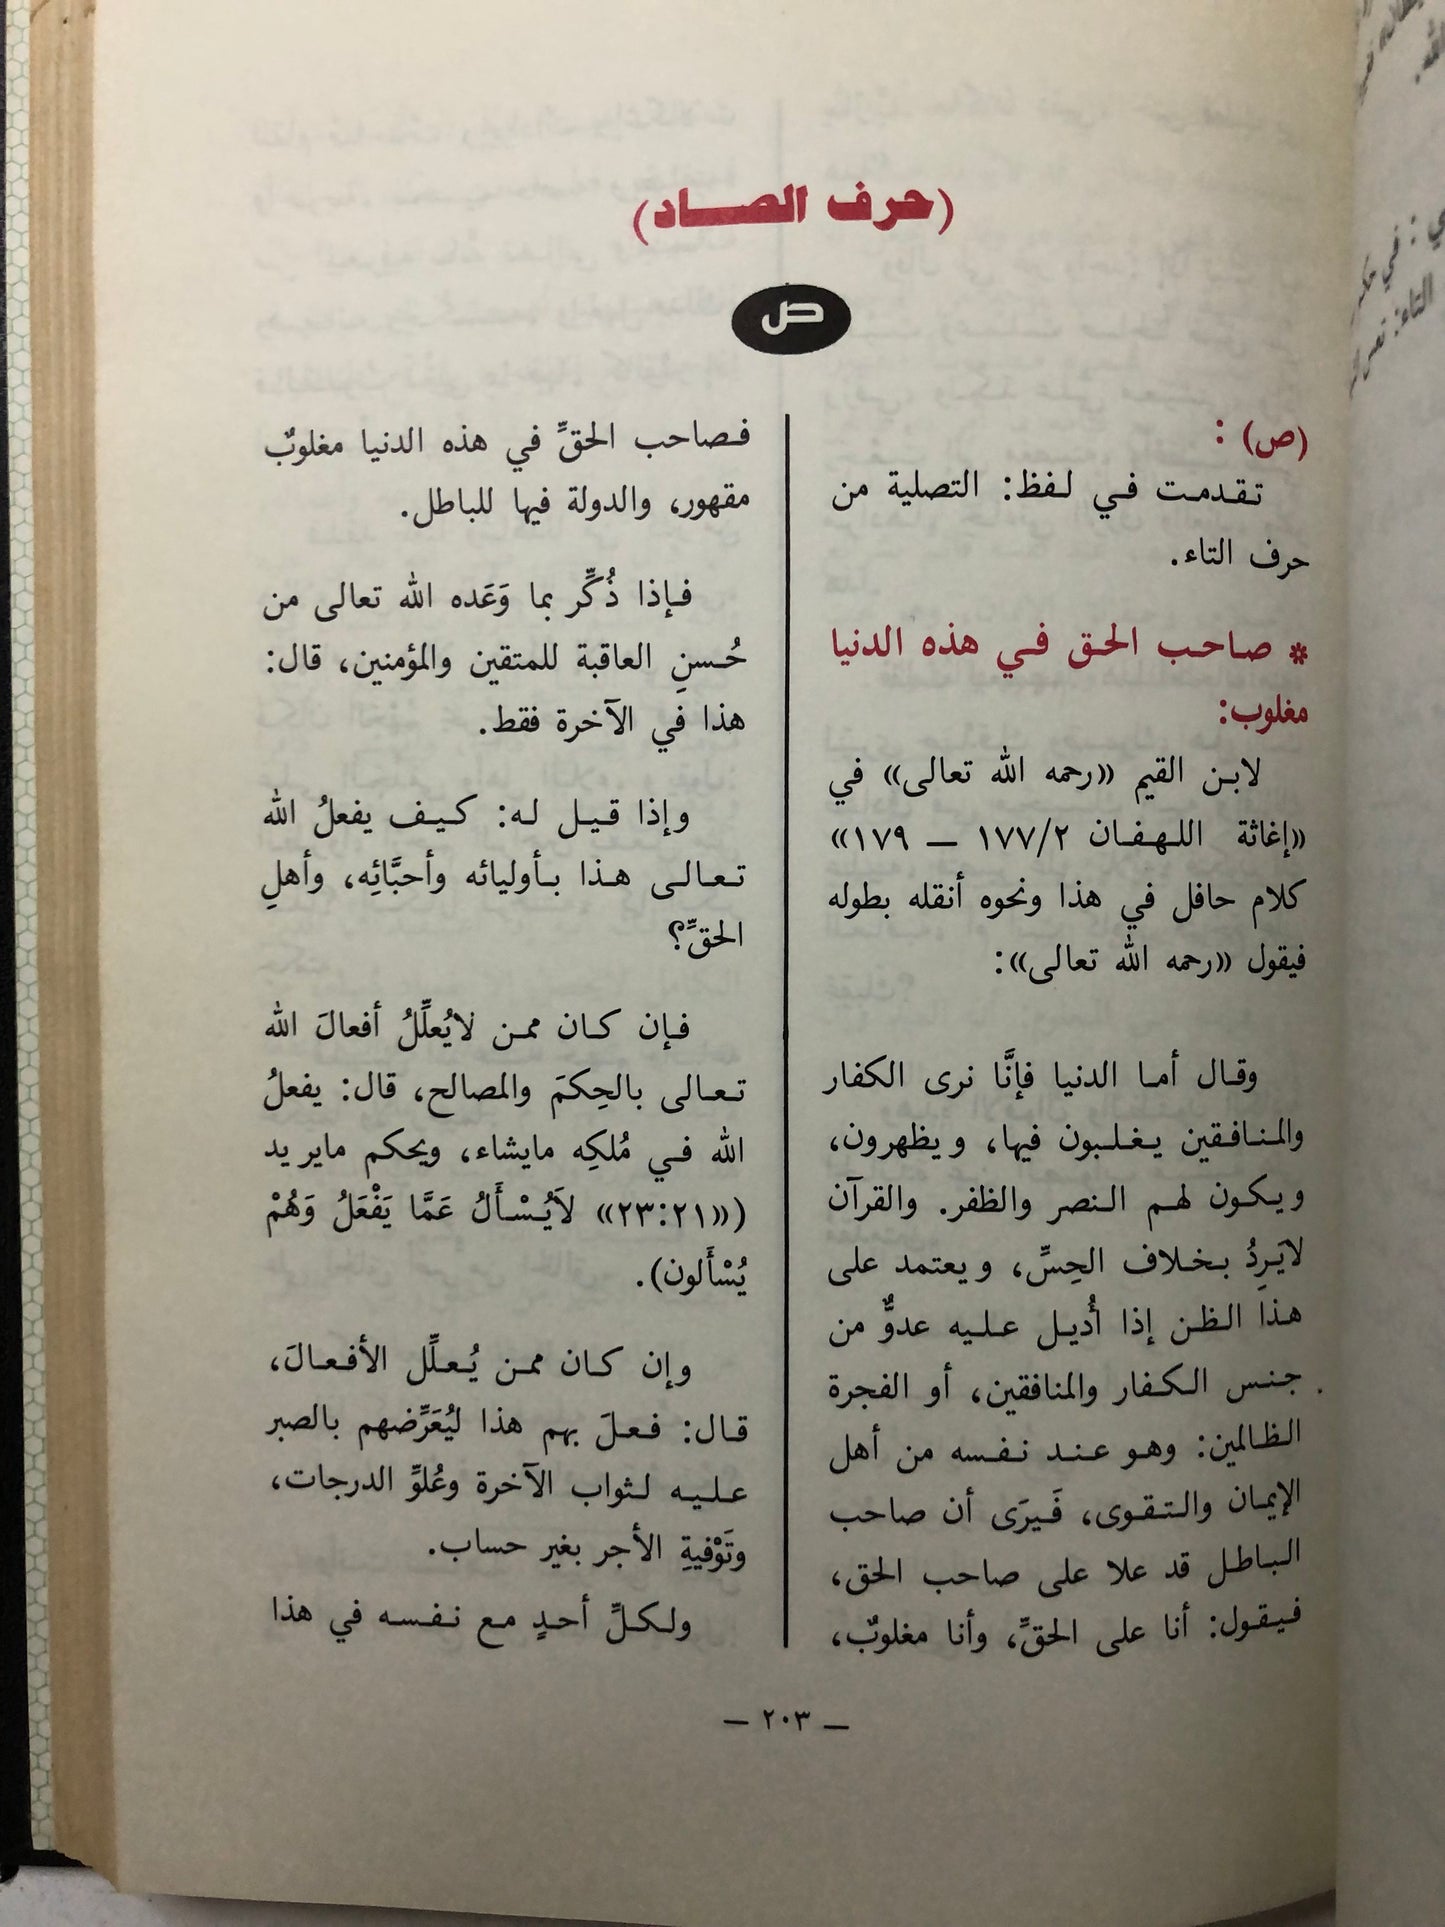 (حرف الصاد)
ص
(ص) :
تقدمت في لفظ: التصلية من
حرف التاء.
* صاحب الحق في هذه الدنيا
مغلوب:
لابن القيم «رحمه الله تعالى» في
«إغاثة اللهفان ١٧٧/٢ — ١٧٩»
كلام حافل في هذا ونحوه أنقله بطوله
فيقول «رحمه الله تعالى»:
وقال أما الدنيا فإنَّا نرى الكفار
والمنافقين يغلبون فيها، ويظهرون،
ويكون لهم النصر والظفر. والقرآن
لايَرِدُ بخلاف الحِسِّ، ويعتمد على
هذا الظن إذا أُديل عليه عدوٌّ من
جنس الكفار والمنافقين، أو الفجرة
الظالمين: وهو عند نفسه من أهل
الإيمان والتقوى، فَيرَى أن صاحب
الباطل قد علا على صاحب الحق،
فيقول: أنا على الحقِّ، وأنا مغلوبٌ،
فصاحب الحقِّ في هذه الدنيا مغلوبٌ
مقهور، والدولة فيها للباطل.
فإذا ذُكِّر بما وَعَده الله تعالى من
حُسنِ العاقبة للمتقين والمؤمنين، قال:
هذا في الآخرة فقط.
وإذا قيل له: كيف يفعلُ الله
تعالى هذا بأوليائه وأحبَّائِه، وأهلِ
الحقِّ؟
فإن كان ممن لايُعلِّلُ أفعالَ الله
تعالى بالحِكمَ والمصالح، قال: يفعلُ
الله في مُلكِه مايشاء، ويحكم مايريد
(«٢٣:٢١» لاَيُسْأَلُ عَمَّا يَفْعَلُ وَهُمْ
يُسْأَلون).
وإن كان ممن يُعلِّل الأفعالَ،
قال: فعلَ بهم هذا ليُعَرِّضهم بالصبر
عليه لثواب الآخرة وعُلوِّ الدرجات،
وتَوْفيةِ الأجر بغير حساب.
ولكلِّ أحدٍ مع نفسه في هذا
— ٢٠٣ —